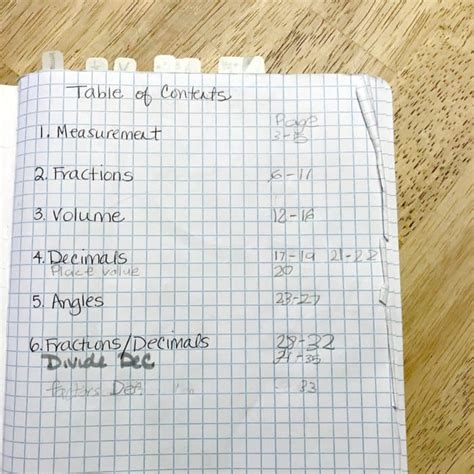 Table of Contents
Page
1. Measurement
2. Fractions 6-11
3. Volume 12-16
4. Decimals 17-19 21-22
Place value 20
5. Angles 23-27
6. Fractions/Decimals 28-32
Divide Dec
33